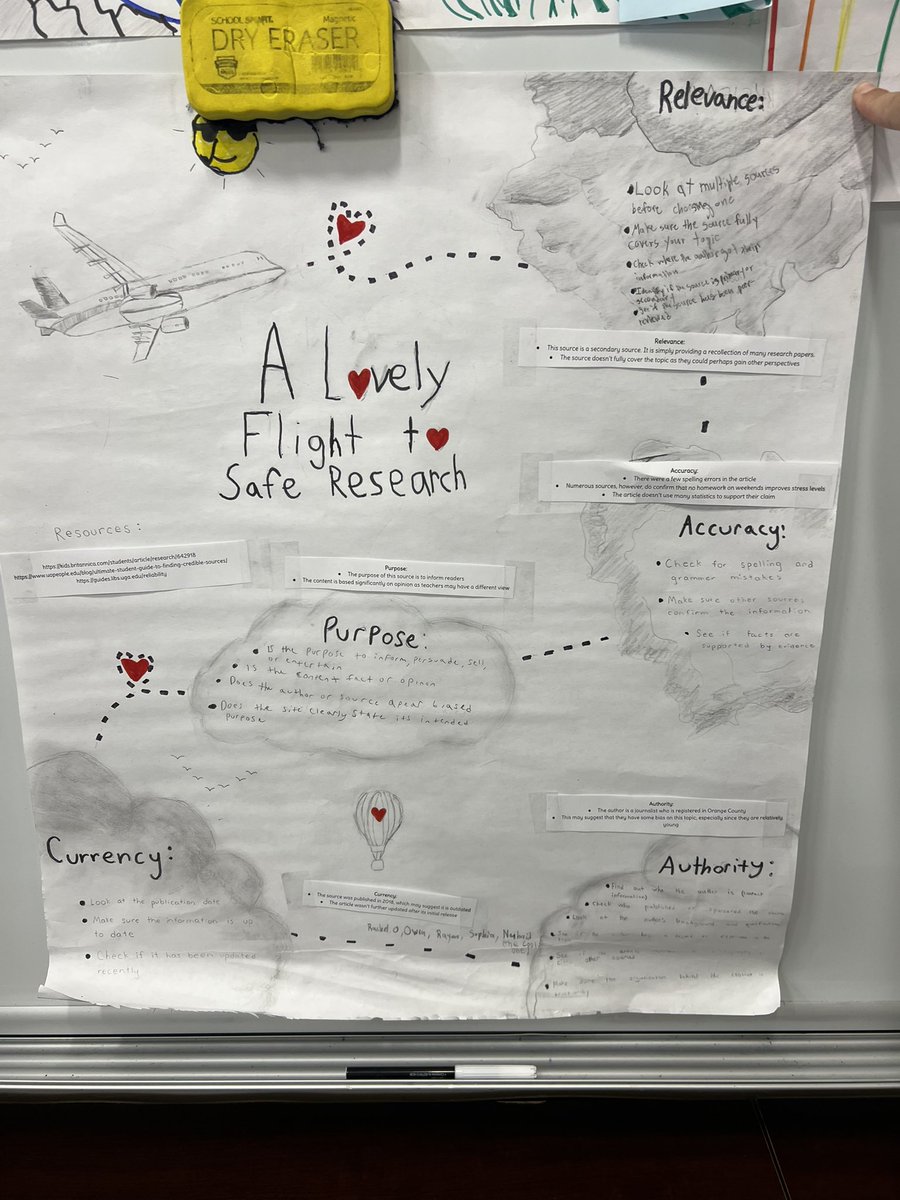 SCHOOL SMART. Magnetic
DRY ERASER
Relevance:
Look at multiple sources
before choosing one
Make sure the source fully
covers your topic
Check where the author got their
information
Identify if the source is primary or
secondary
See if the source has been peer-
reviewed
Relevance:
This source is a secondary source. It is simply providing a recollection of many research papers.
The source doesn't fully cover the topic as they could perhaps gain other perspectives
A Lovely
Flight to
Safe Research
Accuracy:
There were a few spelling errors in the article
Numerous sources, however, do confirm that no homework on weekends improves stress levels
The article doesn't use many statistics to support their claim
Accuracy:
Check for spelling and
grammer mistakes
Make sure other sources
confirm the information
See if facts are
supported by evidence
Resources:
https://kids.britannica.com/students/article/research/642918
https://www.uopeople.edu/blog/ultimate-student-guide-to-finding-credible-sources/
https://guides.libs.uga.edu/reliability
Purpose:
The purpose of this source is to inform readers
The content is based significantly on opinion as teachers may have a different view
Purpose:
Is the purpose to inform, persuade, sell,
or entertain
Is the content fact or opinion
Does the author or source apear biased
Does the site clearly state its intended
purpose
Authority:
The author is a journalist who is registered in Orange County
This may suggest that they have some bias on this topic, especially since they are relatively
young
Currency:
Look at the publication date
Make sure the information is up
to date
Check if it has been updated
recently
Currency:
The source was published in 2018, which may suggest it is outdated
The article wasn't further updated after its initial release
Rachel O, Owen, Rayan, Sophia,
(the cool
one)
Authority:
Find out who the author is
information)
Check who published or sponsored the
Look at the author's background and
other sources
Make sure the organization behind the